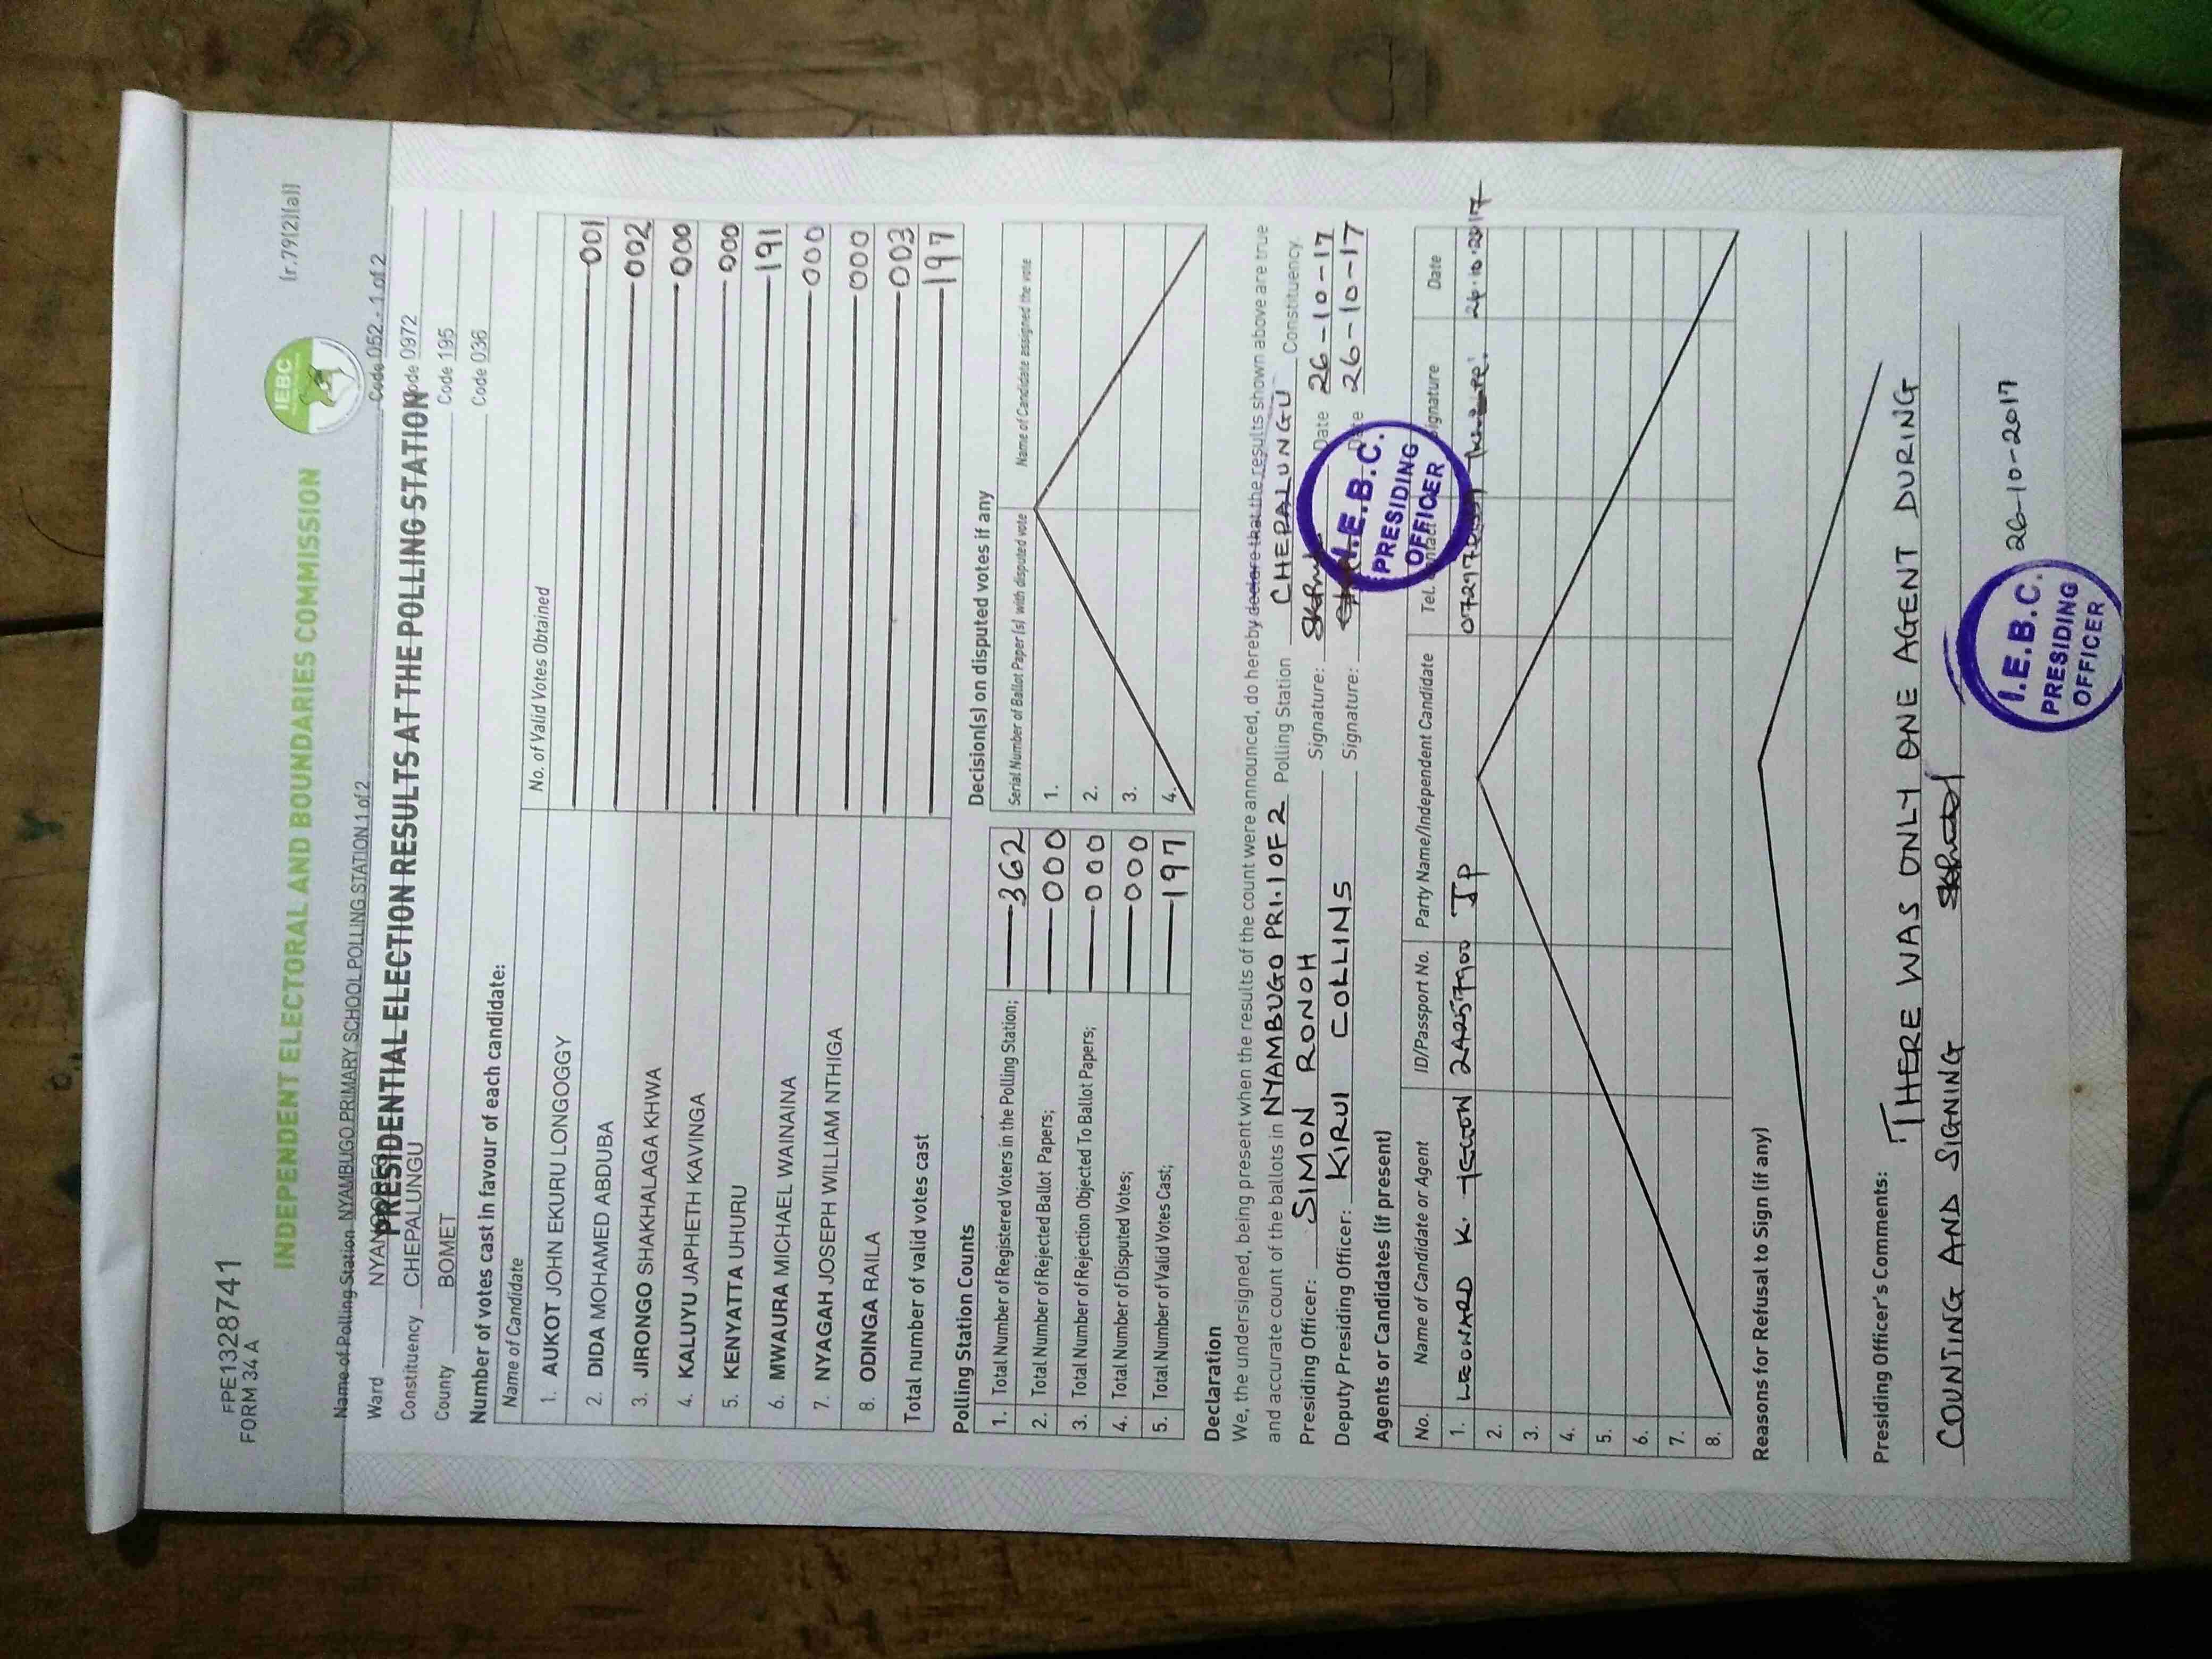 FPE1328741
FORM 34 A
(r.79(2)(a))
IEBC
INDEPENDENT ELECTORAL AND BOUNDARIES COMMISSION
Name of Polling Station NYAMBUGO PRIMARY SCHOOL POLLING STATION 1 of 2 Code 052 - 1 of 2
PRESIDENTIAL ELECTION RESULTS AT THE POLLING STATION
Ward NYANGORES Code 0972
Constituency CHEPALUNGU Code 195
County BOMET Code 036
Number of votes cast in favour of each candidate:
Name of Candidate No. of Valid Votes Obtained
1. AUKOT JOHN EKURU LONGOGGY 001
2. DIDA MOHAMED ABDUBA 002
3. JIRONGO SHAKHALAGA KHWA 000
4. KALUYU JAPHETH KAVINGA 000
5. KENYATTA UHURU 191
6. MWAURA MICHAEL WAINAINA 000
7. NYAGAH JOSEPH WILLIAM NTHIGA 000
8. ODINGA RAILA 003
Total number of valid votes cast 197
Polling Station Counts
1. Total Number of Registered Voters in the Polling Station; 362
2. Total Number of Rejected Ballot Papers; 000
3. Total Number of Rejection Objected To Ballot Papers; 000
4. Total Number of Disputed Votes; 000
5. Total Number of Valid Votes Cast; 197
Decision(s) on disputed votes if any
Serial Number of Ballot Paper(s) with disputed vote Name of Candidate assigned the vote
1.
2.
3.
4.
Declaration
We, the undersigned, being present when the results of the count were announced, do hereby declare that the results shown above are true
and accurate count of the ballots in NYAMBUGO PRI. 1 OF 2 Polling Station CHEPALUNGU Constituency.
Presiding Officer: SIMON RONOH Signature: Date 26-10-17
Deputy Presiding Officer: KIRUI COLLINS Signature: Date 26-10-17
I.E.B.C.
PRESIDING
OFFICER
Agents or Candidates (if present)
No. Name of Candidate or Agent ID/Passport No. Party Name/Independent Candidate Tel. Contact Signature Date
1. LEONARD K. JP 26.10.2017
2.
3.
4.
5.
6.
7.
8.
Reasons for Refusal to Sign (if any)
Presiding Officer's Comments:
THERE WAS ONLY ONE AGENT DURING
COUNTING AND SIGNING
26-10-2017
I.E.B.C.
PRESIDING
OFFICER